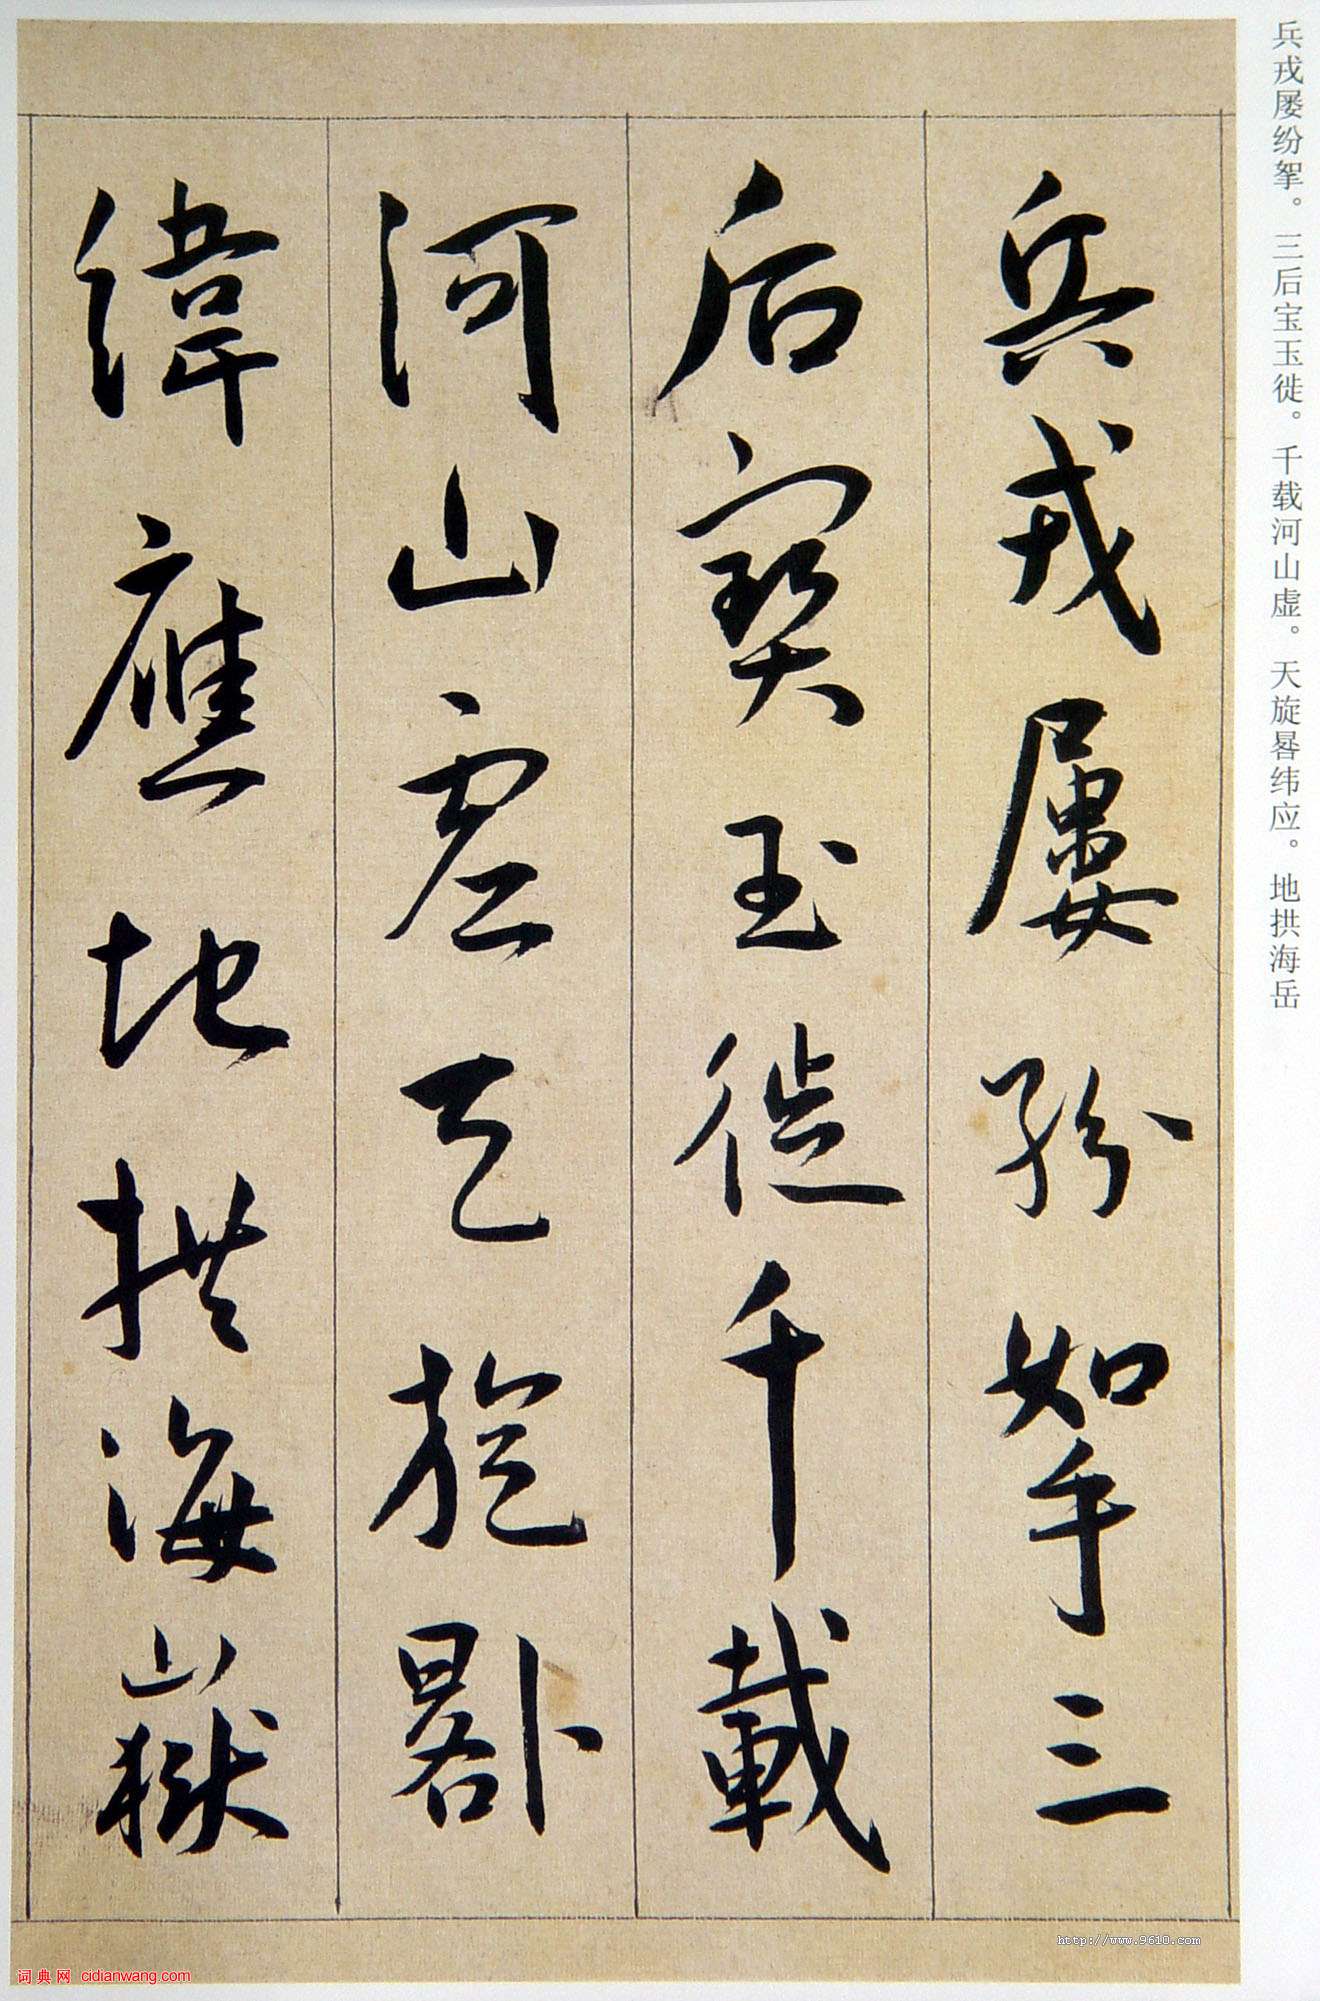 兵戎屡纷挐。三后宝玉徙。千载河山虚。天旋晷纬应。地拱海岳
兵戎屢紛挐三
后寶玉徙千載
河山虛天旋晷
緯應地拱海嶽
http://www.9610.com
词典网 cidianwang.com